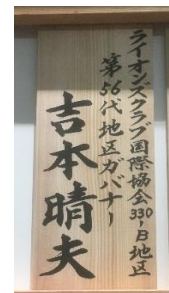 ライオンズクラブ国際協会330-B地区
第56代地区ガバナー
吉本晴夫